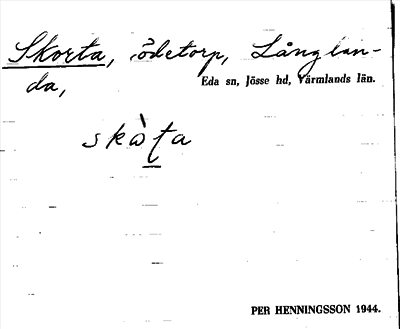 Skorta, ödetorp, Långelan-
da,
Eda sn, Jösse hd, Värmlands län.
skò̀ʈa
PER HENNINGSSON 1944.